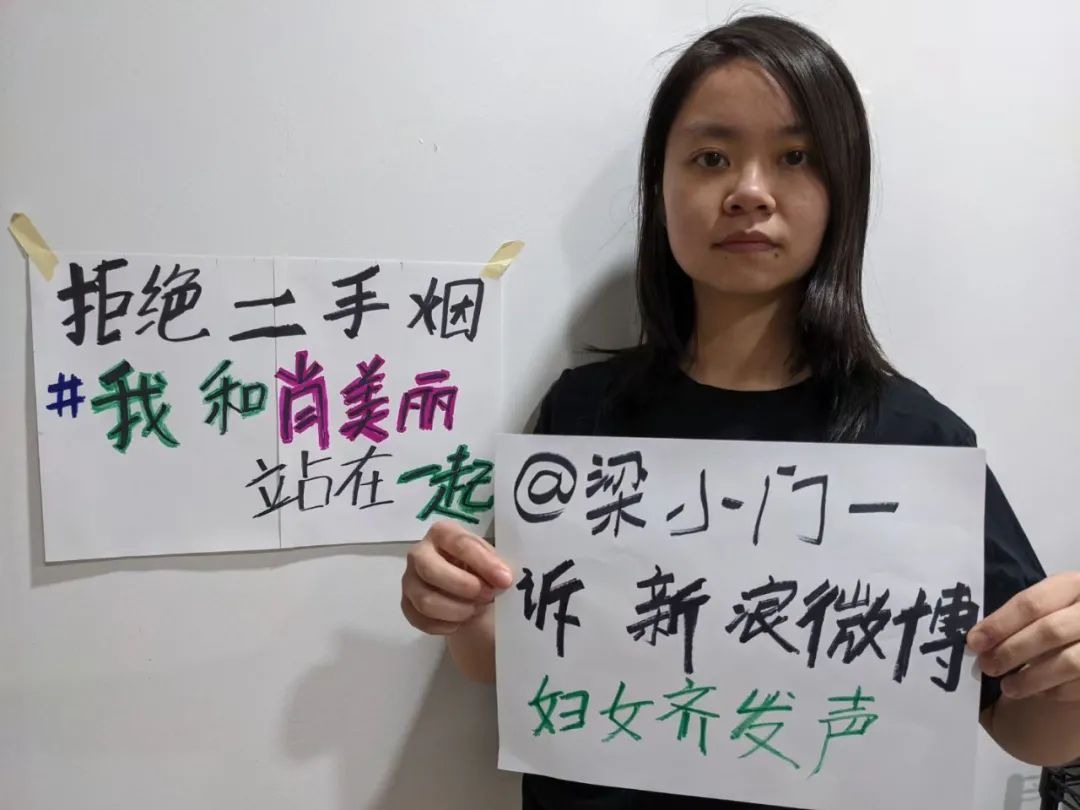 拒绝二手烟
#我和肖美丽
站在一起
@梁小门一
诉新浪微博
妇女齐发声